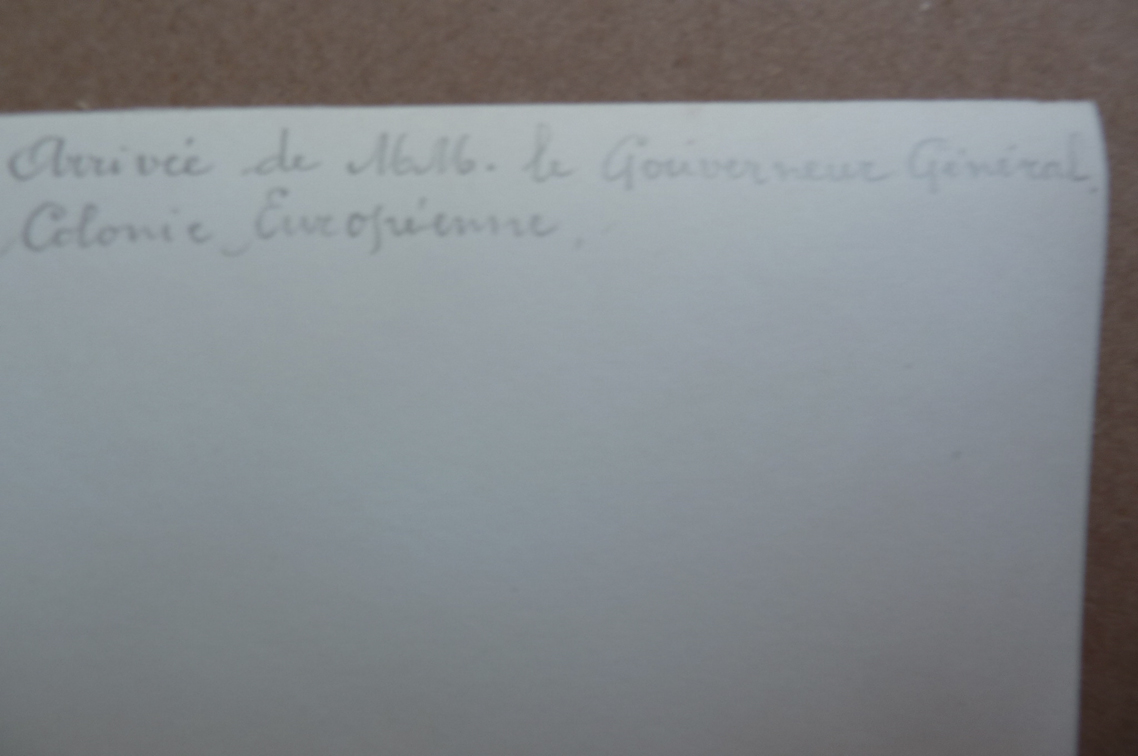 Arrivée de MM. le Gouverneur Général.
Colonie Européenne.